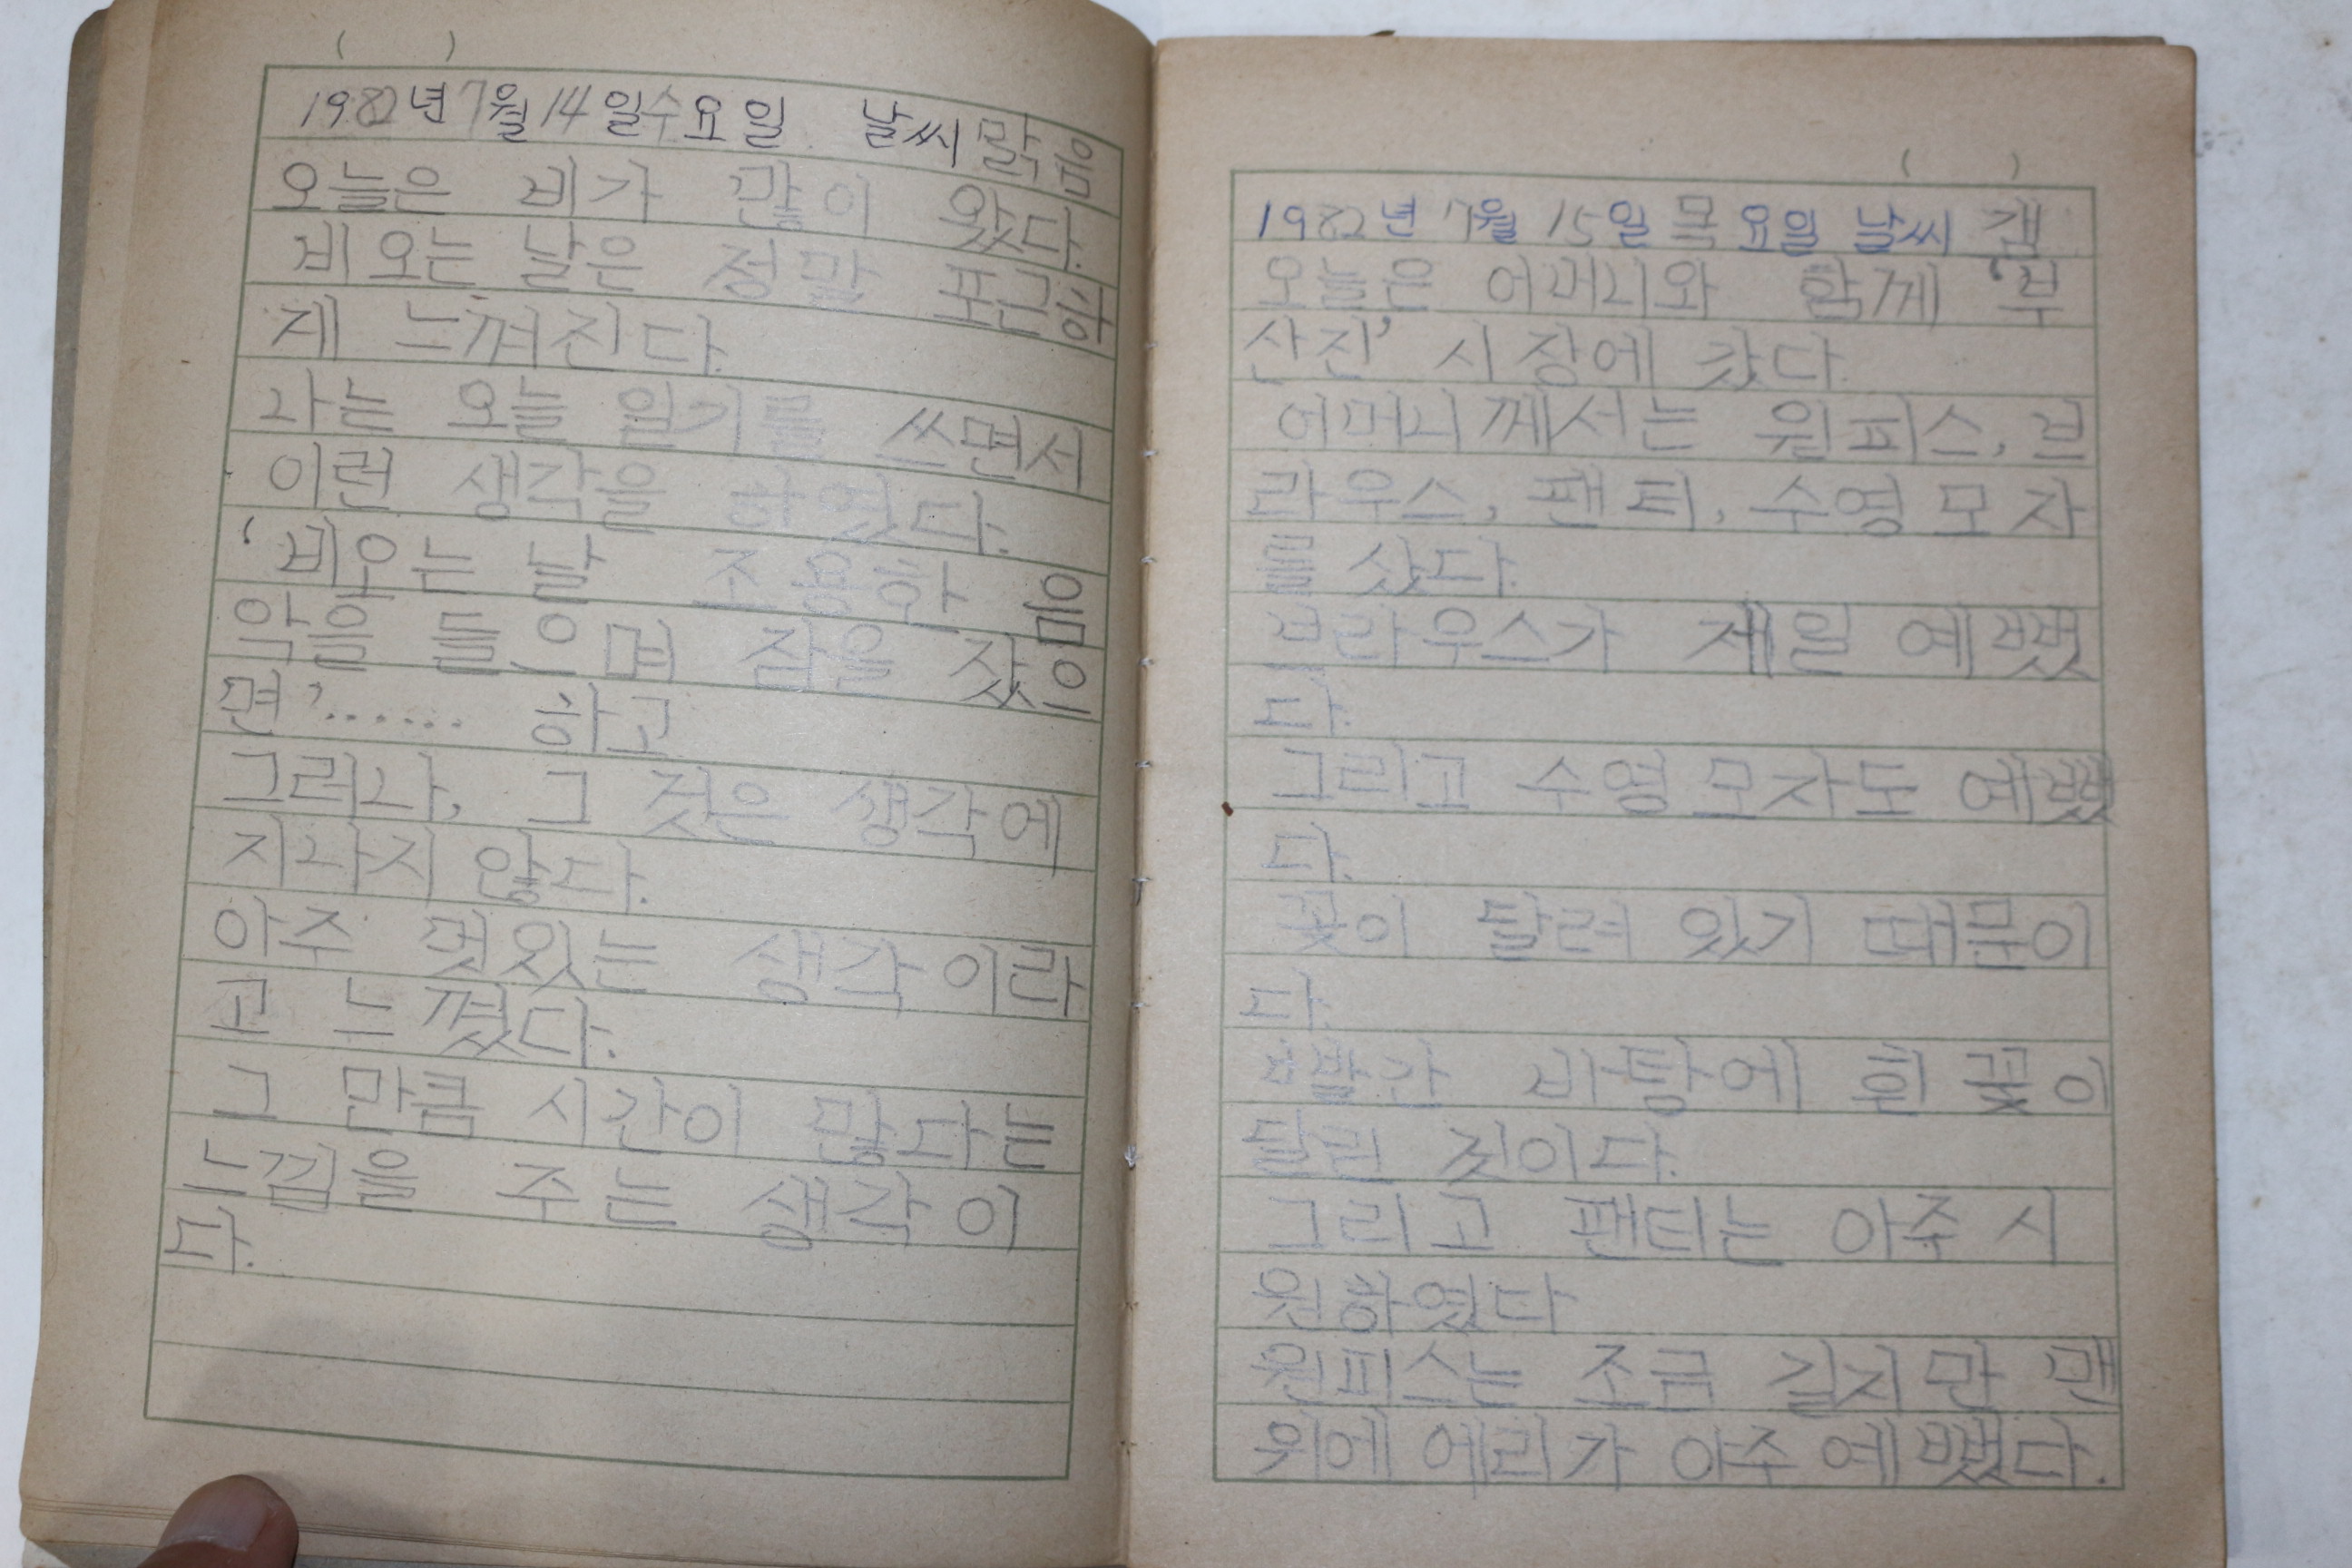 ( )
1982년 7월 14일 수요일 날씨 맑음
오늘은 비가 많이 왔다.
비오는 날은 정말 포근하
게 느껴진다.
나는 오늘 일기를 쓰면서
이런 생각을 하였다.
‘비오는 날 조용한 음
악을 들으며 잠을 잤으
면’...... 하고
그러나, 그 것은 생각에
지나지 않다.
아주 멋있는 생각이라
고 느꼈다.
그 만큼 시간이 많다는
느낌을 주는 생각이
다.
( )
1982년 7월 15일 목요일 날씨 갬
오늘은 어머니와 함께 ‘부
산진’ 시장에 갔다.
어머니께서는 원피스, 브
라우스, 팬티, 수영모자
를 샀다.
브라우스가 제일 예뻤
다.
그리고 수영모자도 예뻤
다.
꽃이 달려 있기 때문이
다.
빨간 바탕에 흰 꽃이
달린 것이다.
그리고 팬티는 아주 시
원하였다
원피스는 조금 길지만 맨
위에 에리가 아주 예뻤다.